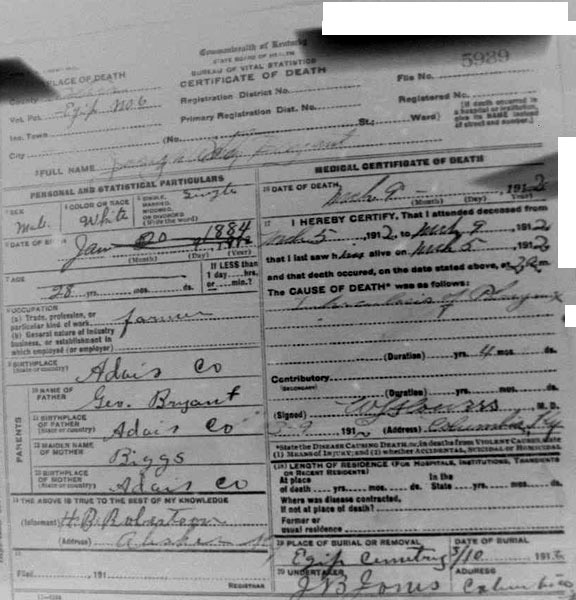 Commonwealth of Kentucky
STATE BOARD OF HEALTH
BUREAU OF VITAL STATISTICS
CERTIFICATE OF DEATH
PLACE OF DEATH
County
Vot. Pct. Egip No. 6
Inc. Town
City
Registration District No.
Primary Registration Dist. No.
(No. St.; Ward)
File No. 5939
Registered No.
[If death occurred in a hospital or institution give its NAME instead of street and number.]
FULL NAME Bryant
PERSONAL AND STATISTICAL PARTICULARS
SEX Male
COLOR OR RACE White
SINGLE, MARRIED, WIDOWED, OR DIVORCED (Write the word) Single
DATE OF BIRTH Jan 20 1884
(Month) (Day) (Year)
AGE
28 yrs. mos. ds.
If LESS than 1 day hrs. or min.?
OCCUPATION
(a) Trade, profession, or particular kind of work farmer
(b) General nature of industry business, or establishment in which employed (or employer)
BIRTHPLACE (State or country) Adair Co
10 NAME OF FATHER Geo. Bryant
11 BIRTHPLACE OF FATHER (State or country) Adair Co
12 MAIDEN NAME OF MOTHER Biggs
13 BIRTHPLACE OF MOTHER (State or country) Adair Co
PARENTS
14 THE ABOVE IS TRUE TO THE BEST OF MY KNOWLEDGE
(Informant) H. B. Robertson
(Address)
15
Filed 191
REGISTRAR
MEDICAL CERTIFICATE OF DEATH
16 DATE OF DEATH Mch 9 1912
(Month) (Day) (Year)
17 I HEREBY CERTIFY, That I attended deceased from
Mch 5, 1912 to Mch 9, 1912
that I last saw h alive on Mch 5, 1912
and that death occured, on the date stated above, at m.
The CAUSE OF DEATH* was as follows:
Tuberculosis of Pharynx
(Duration) yrs. 4 mos. ds.
Contributory (SECONDARY)
(Duration) yrs. mos. ds.
(Signed) M. D.
3-9, 191 (Address) Columbia Ky
*State the DISEASE CAUSING DEATH, or, in deaths from VIOLENT CAUSES, state (1) MEANS OF INJURY; and (2) whether ACCIDENTAL, SUICIDAL or HOMICIDAL
18 LENGTH OF RESIDENCE (FOR HOSPITALS, INSTITUTIONS, TRANSIENTS OR RECENT RESIDENTS)
At place of death yrs. mos. ds. In the State yrs. mos. ds.
Where was disease contracted, if not at place of death?
Former or usual residence
19 PLACE OF BURIAL OR REMOVAL Egip Cemetry
DATE OF BURIAL 3/10 1912
20 UNDERTAKER J B Jones
ADDRESS Columbia